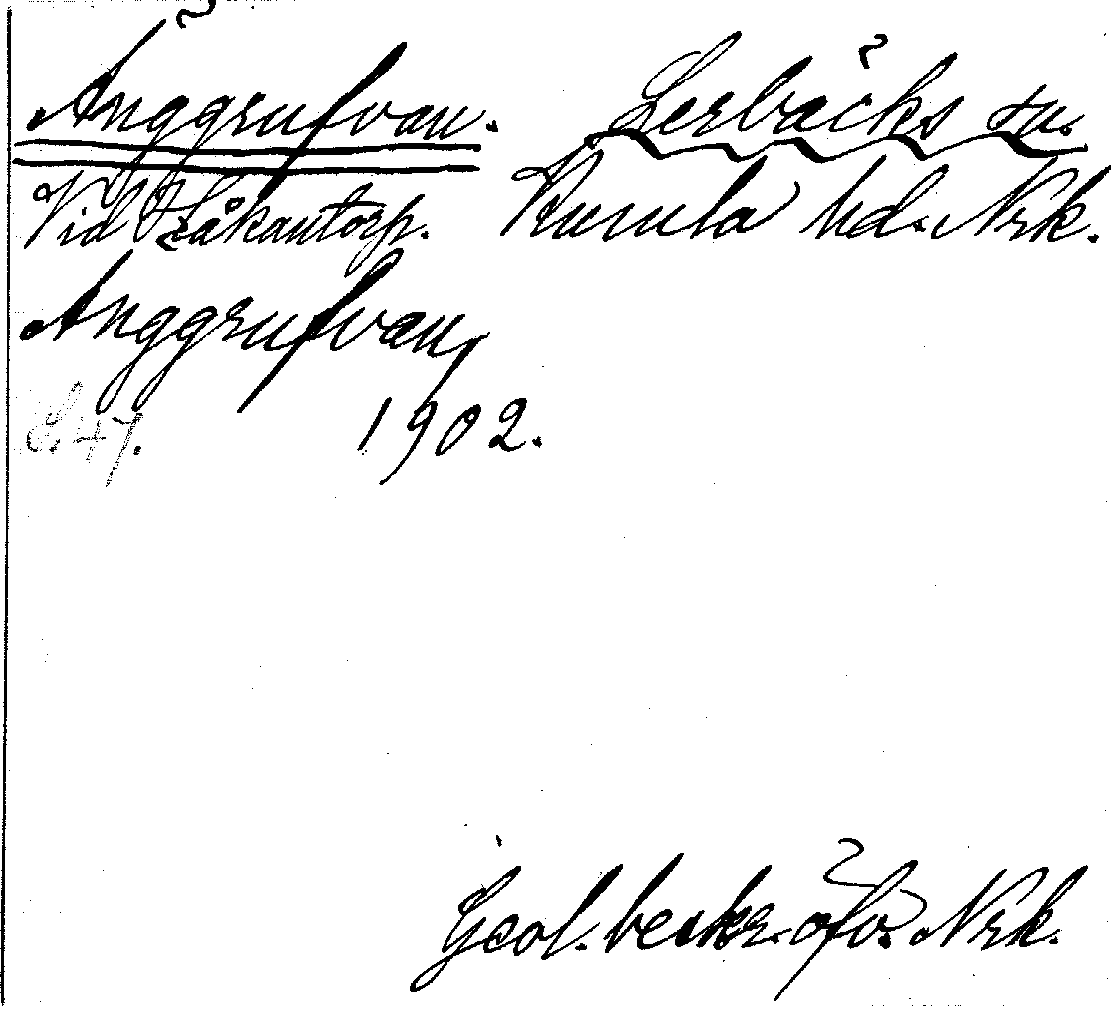 Änggrufvan. Lerbäcks sn.
Vid Håkantorp. Kumla hd. Nrk.
Änggrufvan,
1902.
Geol. beskr. öfv. Nrk.